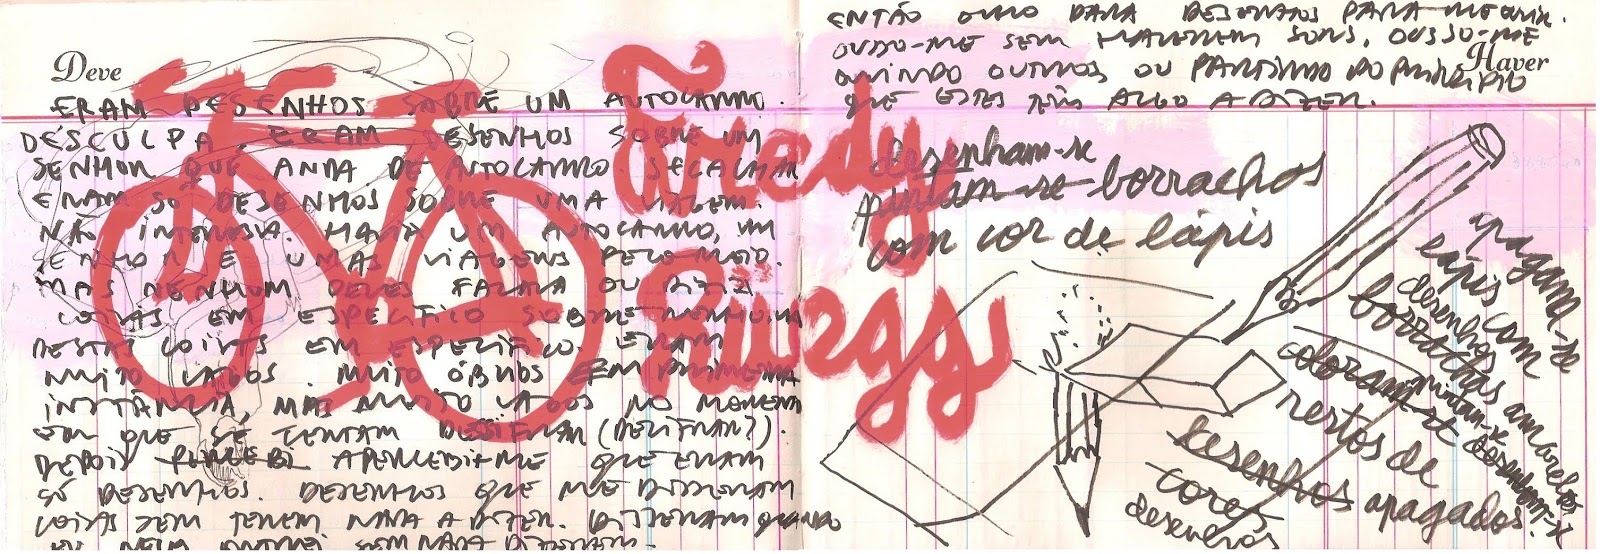 Deve
ERAM DESENHOS SOBRE UM AUTOCARRO.
DESCULPA, ERAM DESENHOS SOBRE UM
SENHOR QUE ANDA DE AUTOCARRO. SECALHAR
ERAM SÓ DESENHOS SOBRE UMA VIAGEM.
NÃO INTERESSA. HAVIA UM AUTOCARRO, UM
SENHOR E UMAS VIAGENS PELO MEIO.
MAS NENHUM DELES FALAVA OU DIZIA
COISAS EM ESPECÍFICO SOBRE NENHUMA
DESTAS COISAS EM ESPECÍFICO. ERAM
MUITO VAGOS. MUITO ÓBVIOS EM PRIMEIRA
INSTÂNCIA, MAS MUITO VAGOS NO MOMENTO
EM QUE SE TENTAM DESSIFRAR (DECIFRAR?).
DEPOIS PERCEBI APERCEBI-ME QUE ERAM
SÓ DESENHOS. DESENHOS QUE ME DISSERAM
COISAS SEM TEREM NADA A DIZER. DISSERAM QUANDO
EU NEM SEM NADA DIZEREM.
Fredy
Rüegg
ENTÃO OLHO PARA DESENHOS PARA ME OUVIR.
OUSSO-ME SEM HAVEREM SONS, OUSSO-ME
OUVINDO OUTROS OU PARTINDO DO PRINCÍPIO
QUE ESTES TÊM ALGO A DIZER.
Haver
desenham-se
pintam-se borrachos
com cor de lápis
apagam-se
lápis com
desenhos
borrachas amarelas
coloram-se
pintam-se
desenham-se
restos de
desenhos apagados.
cores
desenhos